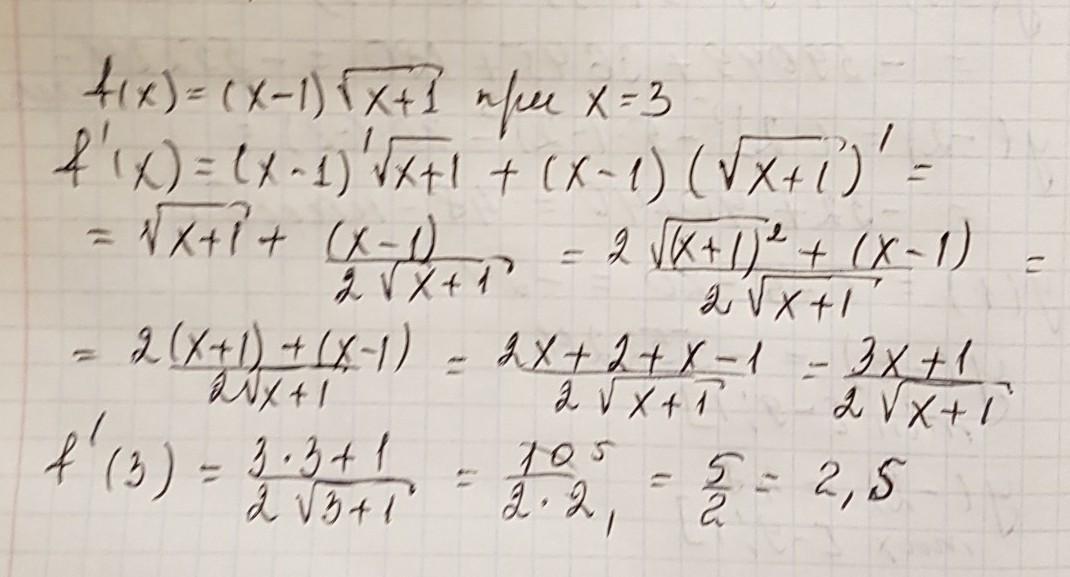 f(x) = (x-1)√(x+1) при x = 3
f'(x) = (x-1)'√(x+1) + (x-1)(√(x+1))' =
= √(x+1) + (x-1)/(2√(x+1)) = (2√(x+1)² + (x-1))/(2√(x+1)) =
= (2(x+1) + (x-1))/(2√(x+1)) = (2x+2+x-1)/(2√(x+1)) = (3x+1)/(2√(x+1))
f'(3) = (3·3+1)/(2√(3+1)) = 10⁵/(2·2₁) = 5/2 = 2,5